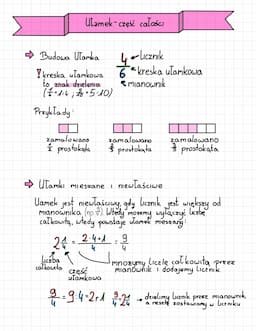 Ułamek-część całości
Budowa Ułamka
4 licznik
6 kreska ułamkowa
mianownik
! kreska ułamkowa
to znak dzielenia
Przykłady:
zamalowano zamalowano zamalowano
prostokąta prostokąta prostokąta
Ułamki mieszane i niewłaściwe
Ułamek jest niewłaściwy, gdy licznik jest większy od
mianownika (np. Wtedy możemy wyłączyć liczbę
całkowitą, wtedy powstaje ułamek mieszany:
2 1/4 = 2·4+1/4 = 9/4
liczba
całkowita
część
ułamkowa
mnożymy liczbę całkowitą przez
mianownik i dodajemy licznik
9/4 = 9:4=2r1 9/4=2 1/4 dzielimy licznik przez mianownik
a resztę zostawiamy w liczniku